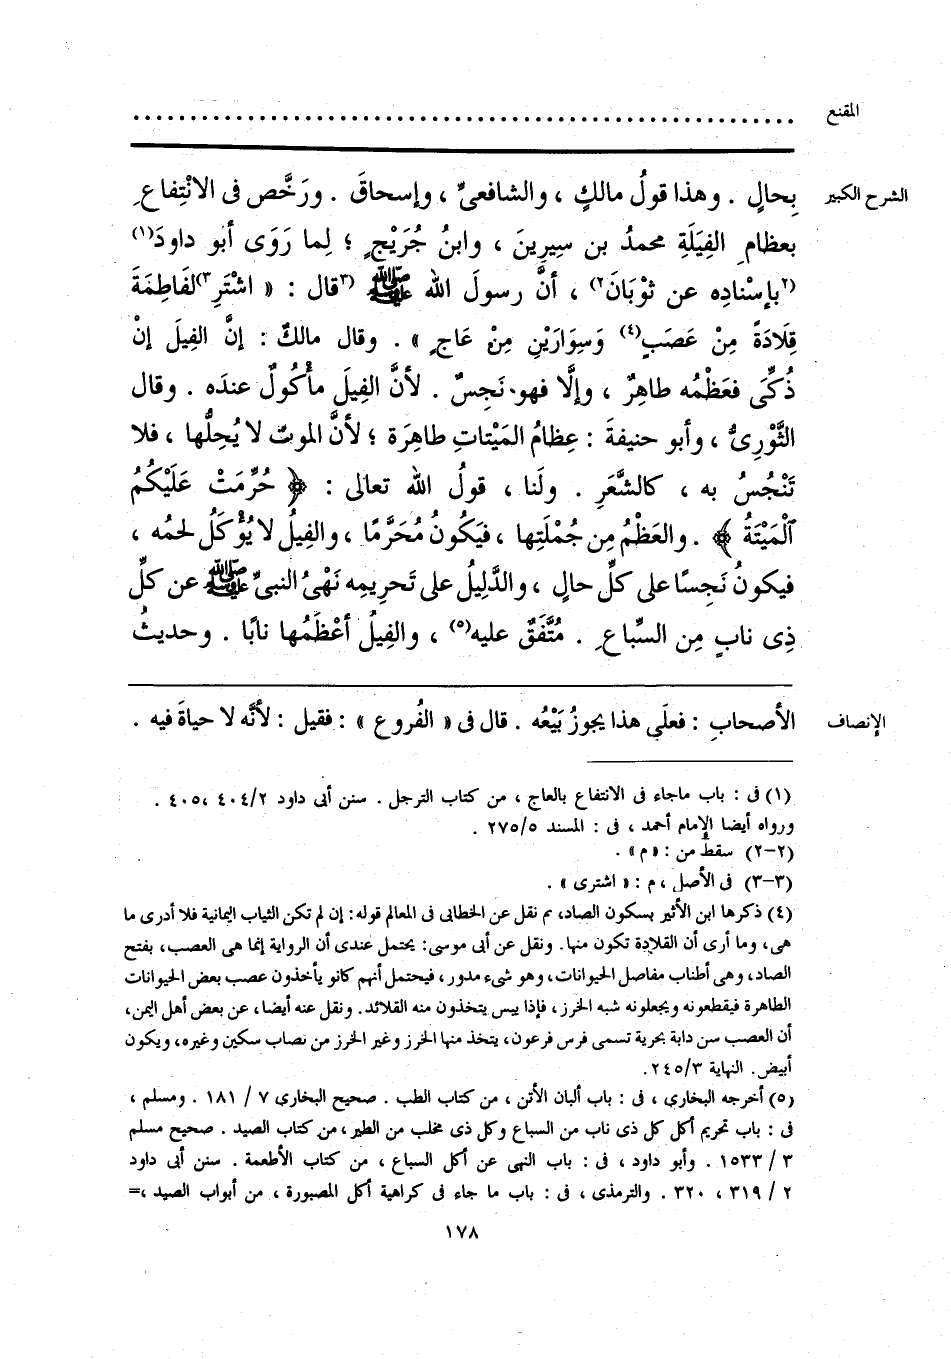 المقنع ..........................................................
الشرح الكبير بِحالٍ . وهذا قولُ مالكٍ ، والشافعىِّ ، وإسحاقَ . ورَخَّص فى الانْتِفاعِ
بعظامِ الفِيَلَةِ محمدُ بن سِيرِينَ ، وابنُ جُرَيْجٍ ؛ لِما رَوَى أبو داودَ(١)
(٢بإسْنادِه عن ثَوْبَانَ٢) ، أنَّ رسولَ اللهِ ﷺ (٣قال : « اشْتَرِ٣) لفَاطِمَةَ
قِلَادَةً مِنْ عَصَبٍ(٤) وَسِوَارَيْنِ مِنْ عَاجٍ » . وقال مالكٌ : إنَّ الفِيلَ إنْ
ذُكِّىَ فعَظْمُه طاهِرٌ ، وإلَّا فهو نَجِسٌ . لأنَّ الفِيلَ مأْكُولٌ عندَه . وقال
الثَّوْرِىُّ ، وأبو حنيفةَ : عِظامُ المَيْتاتِ طاهِرَة ؛ لأنَّ الموتَ لا يُحِلُّها ، فلا
تَنْجُسُ به ، كالشَّعَرِ . ولَنا ، قولُ اللهِ تعالى : ﴿ حُرِّمَتْ عَلَيْكُمُ
ٱلْمَيْتَةُ ﴾ . والعَظْمُ مِن جُمْلَتِها ، فيَكُونُ مُحَرَّمًا ، والفِيلُ لا يُؤْكَلُ لحمُه ،
فيكونُ نَجِسًا على كلِّ حالٍ ، والدَّلِيلُ على تَحرِيمِه نَهْىُ النبىِّ ﷺ عن كلِّ
ذِى نابٍ مِن السِّباعِ . مُتَّفَقٌ عليه(٥) ، والفِيلُ أعْظَمُها نابًا . وحديثُ
الإنصاف الأصحابِ : فعلَى هذا يجوزُ بَيْعُه . قال فى « الفُروعِ » : فقيل : لأنَّه لا حياةَ فيه .
(١) فى : باب ماجاء فى الانتفاع بالعاج ، من كتاب الترجل . سنن أبى داود ٢/ ٤٠٤ ، ٤٠٥ .
ورواه أيضا الإمام أحمد ، فى : المسند ٥/ ٢٧٥ .
(٢-٢) سقط من : « م » .
(٣-٣) فى الأصل ، م : « اشترى » .
(٤) ذكرها ابن الأثير بسكون الصاد، ثم نقل عن الخطابى فى المعالم قوله: إن لم تكن الثياب اليمانية فلا أدرى ما
هى، وما أرى أن القلادة تكون منها. ونقل عن أبى موسى: يحتمل عندى أن الرواية إنما هى العصب، بفتح
الصاد، وهى أطناب مفاصل الحيوانات، وهو شىء مدور، فيحتمل أنهم كانو يأخذون عصب بعض الحيوانات
الطاهرة فيقطعونه ويجعلونه شبه الخرز، فإذا يبس يتخذون منه القلائد. ونقل عنه أيضا، عن بعض أهل اليمن،
أن العصب سن دابة بحرية تسمى فرس فرعون، يتخذ منها الخرز وغير الخرز من نصاب سكين وغيره، ويكون
أبيض. النهاية ٣/ ٢٤٥.
(٥) أخرجه البخارى ، فى : باب ألبان الأتن ، من كتاب الطب . صحيح البخارى ٧ / ١٨١ . ومسلم ،
فى : باب تحريم أكل كل ذى ناب من السباع وكل ذى مخلب من الطير ، من كتاب الصيد . صحيح مسلم
٣ / ١٥٣٣ . وأبو داود ، فى : باب النهى عن أكل السباع ، من كتاب الأطعمة . سنن أبى داود
٢ / ٣١٩ ، ٣٢٠ . والترمذى ، فى : باب ما جاء فى كراهية أكل المصبورة ، من أبواب الصيد ،=
١٧٨